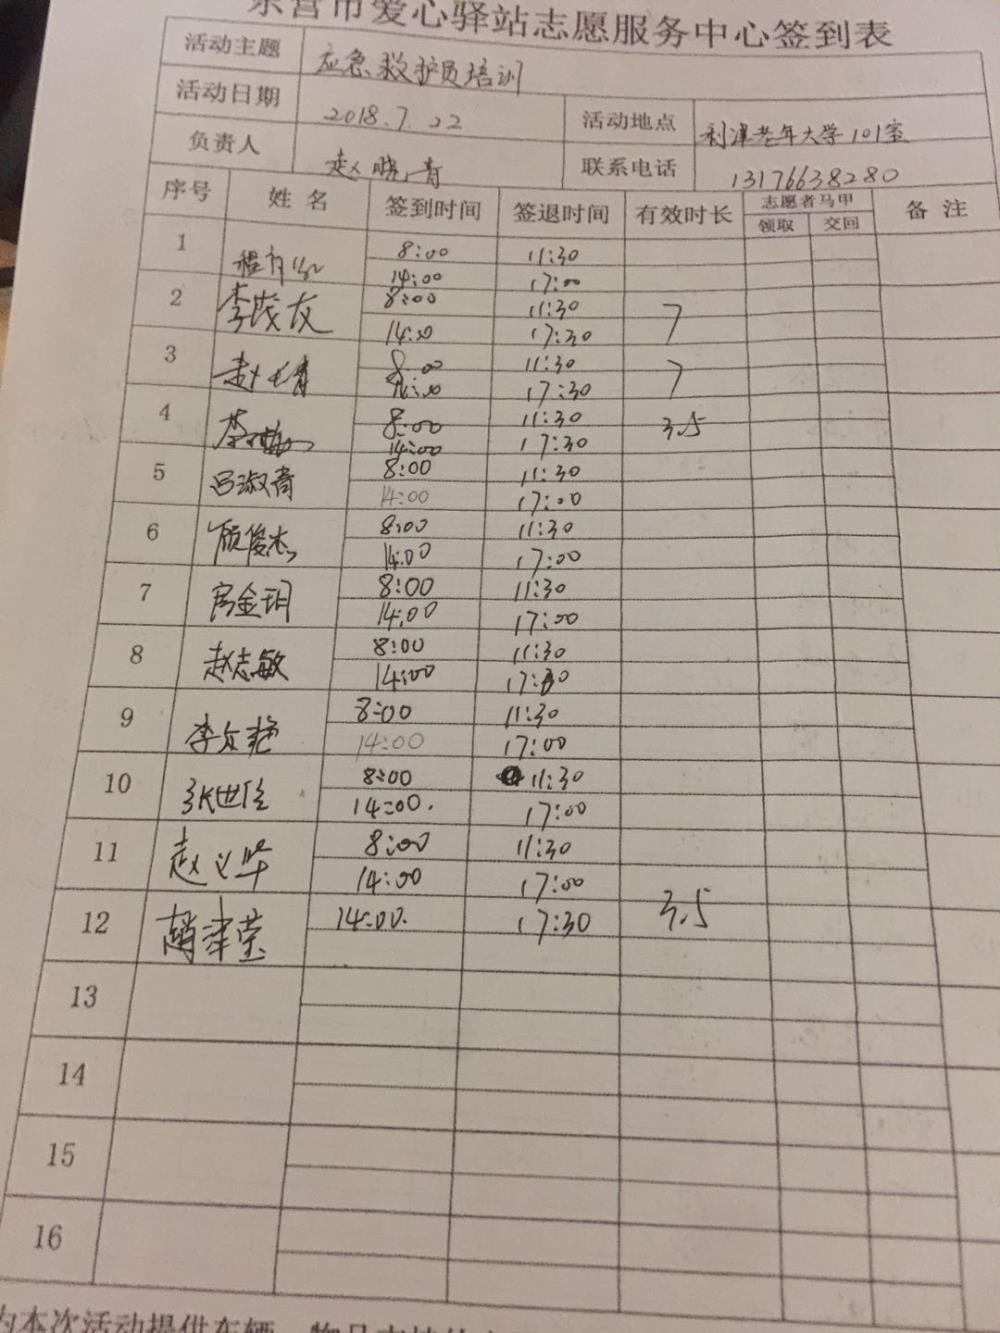 东营市爱心驿站志愿服务中心签到表
活动主题 应急救护员培训
活动日期 2018.7.22 活动地点 利津老年大学101室
负责人 赵晓青 联系电话 13176638280
序号 姓名 签到时间 签退时间 有效时长 志愿者马甲 备注
领取 交回
1 8:00 11:30
14:00 17:00
2 李茂友 8:00 11:30 7
14:00 17:30
3 8:00 11:30 7
17:30
4 8:00 11:30 3.5
14:00 17:30
5 吕淑青 8:00 11:30
14:00 17:00
6 顾俊杰 8:00 11:30
14:00 17:00
7 房金玥 8:00 11:30
14:00 17:00
8 赵志敏 8:00 11:30
14:00 17:30
9 李文艳 8:00 11:30
14:00 17:00
10 8:00 11:30
14:00. 17:00
11 赵义华 8:00 11:30
14:00 17:00
12 趙津莹 14:00. 17:30 3.5
13
14
15
16
为本次活动提供车辆、物品支持的